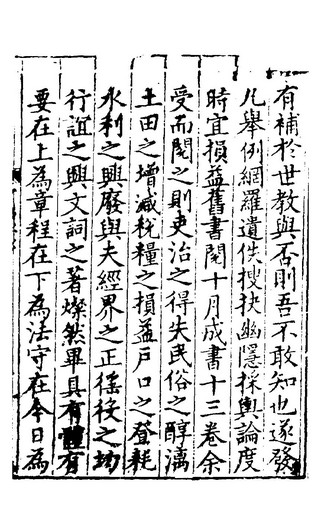 有補於世教與否則吾不敢知也遂發
凡舉例網羅遺佚搜抉幽隱採輿論度
時宜損益舊書閱十月成書十三卷余
受而閱之則吏治之得失民俗之醇漓
土田之增減稅糧之損益戶口之登耗
水利之興廢與夫經界之正徭役之均
行誼之興文詞之著燦然畢具有體有
要在上為章程在下為法守在今日為